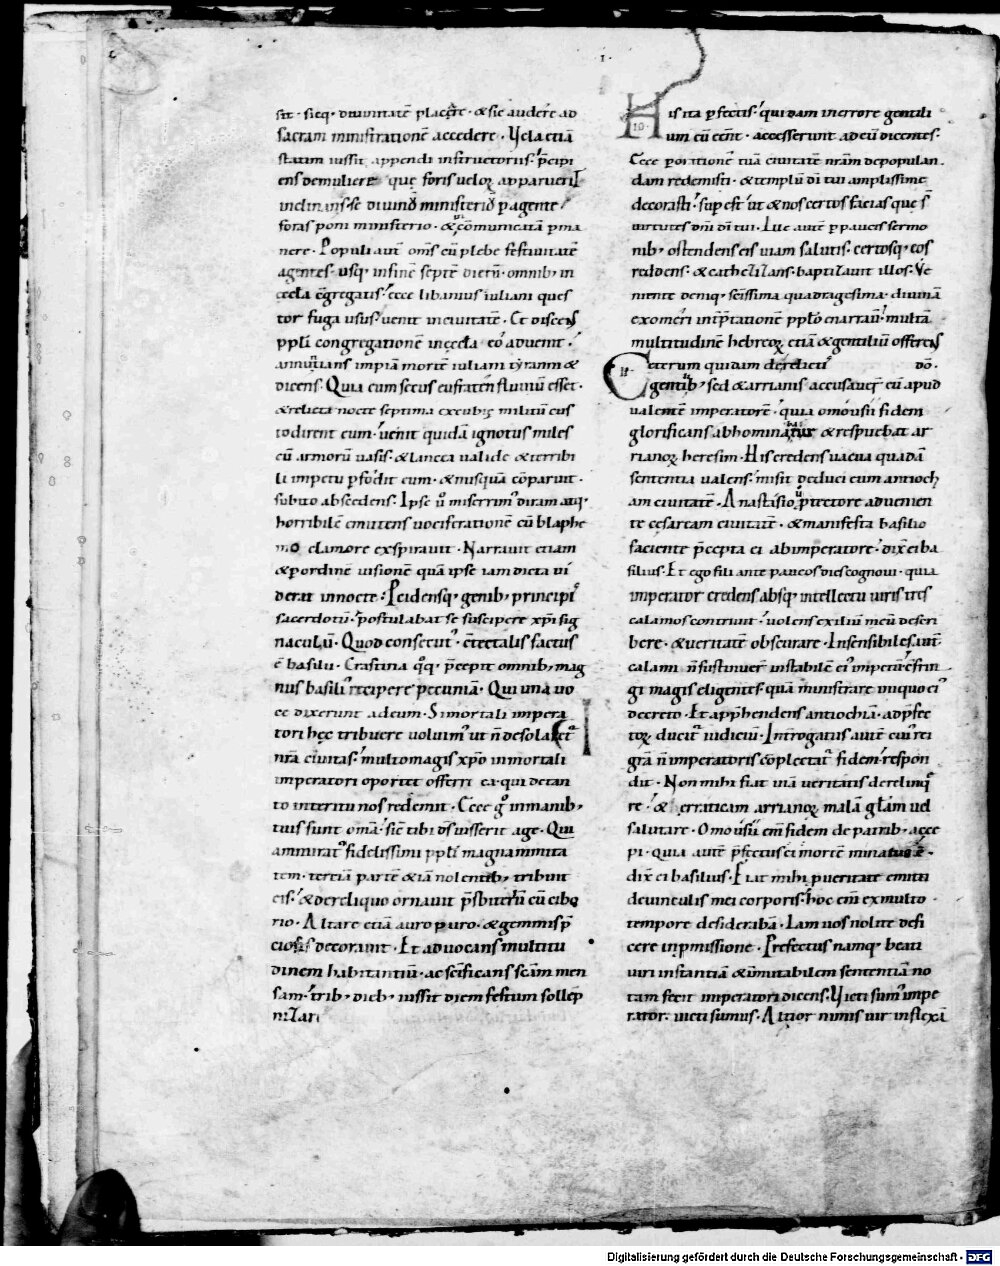 ·1·
sit · sicq· divinitatē placare · & sic audere ad
sacram ministrationē accedere · Vela etiā
statim iussit appendi instructoriis· p̄cipi
ens demuliere que foris veloꝝ apparuerit
inclinans se divino ministerio pagente·
foras poni ministerio · & īcōmunicatā pma
nere · Populi aut̄ om̄s cū plebe festivitatē
agentes· usq· infinē septē dierū· omnib· in
eccła c̄gregatis· ecce libanius iuliani ques
tor fuga usus· venit incivitatē · Et discens
ppli congregationē ineccła eo advenit·
annuntians impiā mortē iuliani tyranni &
dicens· Quia cum secus eufraten fluviū esset·
& relicta nocte septima excubiis militū cus
todirent eum· venit quidā ignotus miles
cū armorū vasis· & lancea valide & terribi
li impetu pfodit eum · & nusquā cōparuit·
subito abscedens· Ipse v̊ miserrim᾽ diram atq·
horribilē emittens vociferationē cū blasphe
mo clamore exspiravit · Narravit etiam
& pordinē visionē quā ipse iam dicta vi
derat innocte· Pcidensq· genib· principis
sacerdotū· postulabat se suscipere xpi sig
naculū· Quod consecut᾽· c̄cetalis factus
ē basilii· Crastina q̊q· p̄cepit omnib· mag
nus basili᾽ recipere pecuniā· Qui una vo
ce dixerunt adeum · Si mortali impera
tori hęc tribuere voluim᾽ ut n̄ desolaret᾽
nr̄a civitas· multomagis xp̄o inmortali
imperatori oportet offerri ea· qui detan
to interitu nos redemit· Ecce g̊ inmanib·
tuis sunt omā· sic̄ tibi d̄s iusserit age · Qui
ammirat᾽ fidelissimi ppłi magnanimita
tem· tertiā partē & iā nolentib· tribuit
eis· & dereliquo ornavit p̄sbiteriū cū cibo
rio· Altare etiā auro puro· & gemmis p̄
ciosis decoravit· Et advocans multitu
dinem habitantiū· ac sc̄ificans sc̄am men
sam· trib· dieb· iussit diem festum sollēp
nizari
His ita pfectis· quidam inerrore gentili
10·
um cū eēnt · accesserunt ad eū dicentes·
Ecce porationē tuā civitatē nr̄am depopulan
dam redemisti· & templū dī tui amplissime
decorasti· sup est ut & nos certos facias que s̄
virtutes dn̄i dī tui· Ille aut̄ p pauces sermo
nib· ostendens eis viam salutis· certosq· eos
reddens· & cathezizans· baptizavit illos· Ve
niente deniq· sc̄issima quadragesima· divinā
exomeri int̄ptationē pplo enarravit· multā
multitudinē hebreoꝝ etiā & gentiliū offerens
Ceterum quidam derelicti᾽ dō·
11·
gentib· sed & arrianis accusaver̄ eū apud
valentē imperatorē· quia omousii fidem
glorificans abhominatur & respuebat ar
rianoꝝ heresim· His credens vacua quadā
sententia valens· misit deduci eum antioch
am civitatē· Anastasio v̊ p̄tectore advenien
te cesaream civitatē· & manifesta basilio
faciente p̄cepta ei abimperatore· dix̄ ei ba
silius· Et ego fili ante paucos dies cognovi· quia
imperator credens absq· intellectu viris tres
calamos contrivit· volens exiliū meū descri
bere· & veritatē obscurare· Insensibiles aut̄
calami n̄ sustinuer̄ instabilē ei᾽ impetū· c̄frin
gi magis eligentes· quā ministrare iniquo ei᾽
decreto· Et appħendens antiochiā· adp̄fec
toꝝ ducit᾽ iudiciū· Int̄rogatus aut̄ cui᾽ rei
grā n̄ imperatoris cōplectat᾽ fidem· respon
dit · Non mihi fiat viā veritatis derelinq᾽
re· & erraticam arrianoꝝ malā głam vel
salutare· Omousii em̄ fidem depatrib· acce
pi· quia aut̄ p̄fectus ei mortē minatus ē·
dix̄ ei basilius· Fiat mihi pveritate emitti
devinculis mei corporis· hoc em̄ exmulto
tempore desiderabā· Iam vos nolite defi
cere inpmissione · Prefectus namq· beati
viri instantiā & īmutabilem sententiā no
tam fecit imperatori dicens· Victi sum᾽ impe
rator· victi sumus· Altior nimis vir inflexi
Digitalisierung gefördert durch die Deutsche Forschungsgemeinschaft - DFG